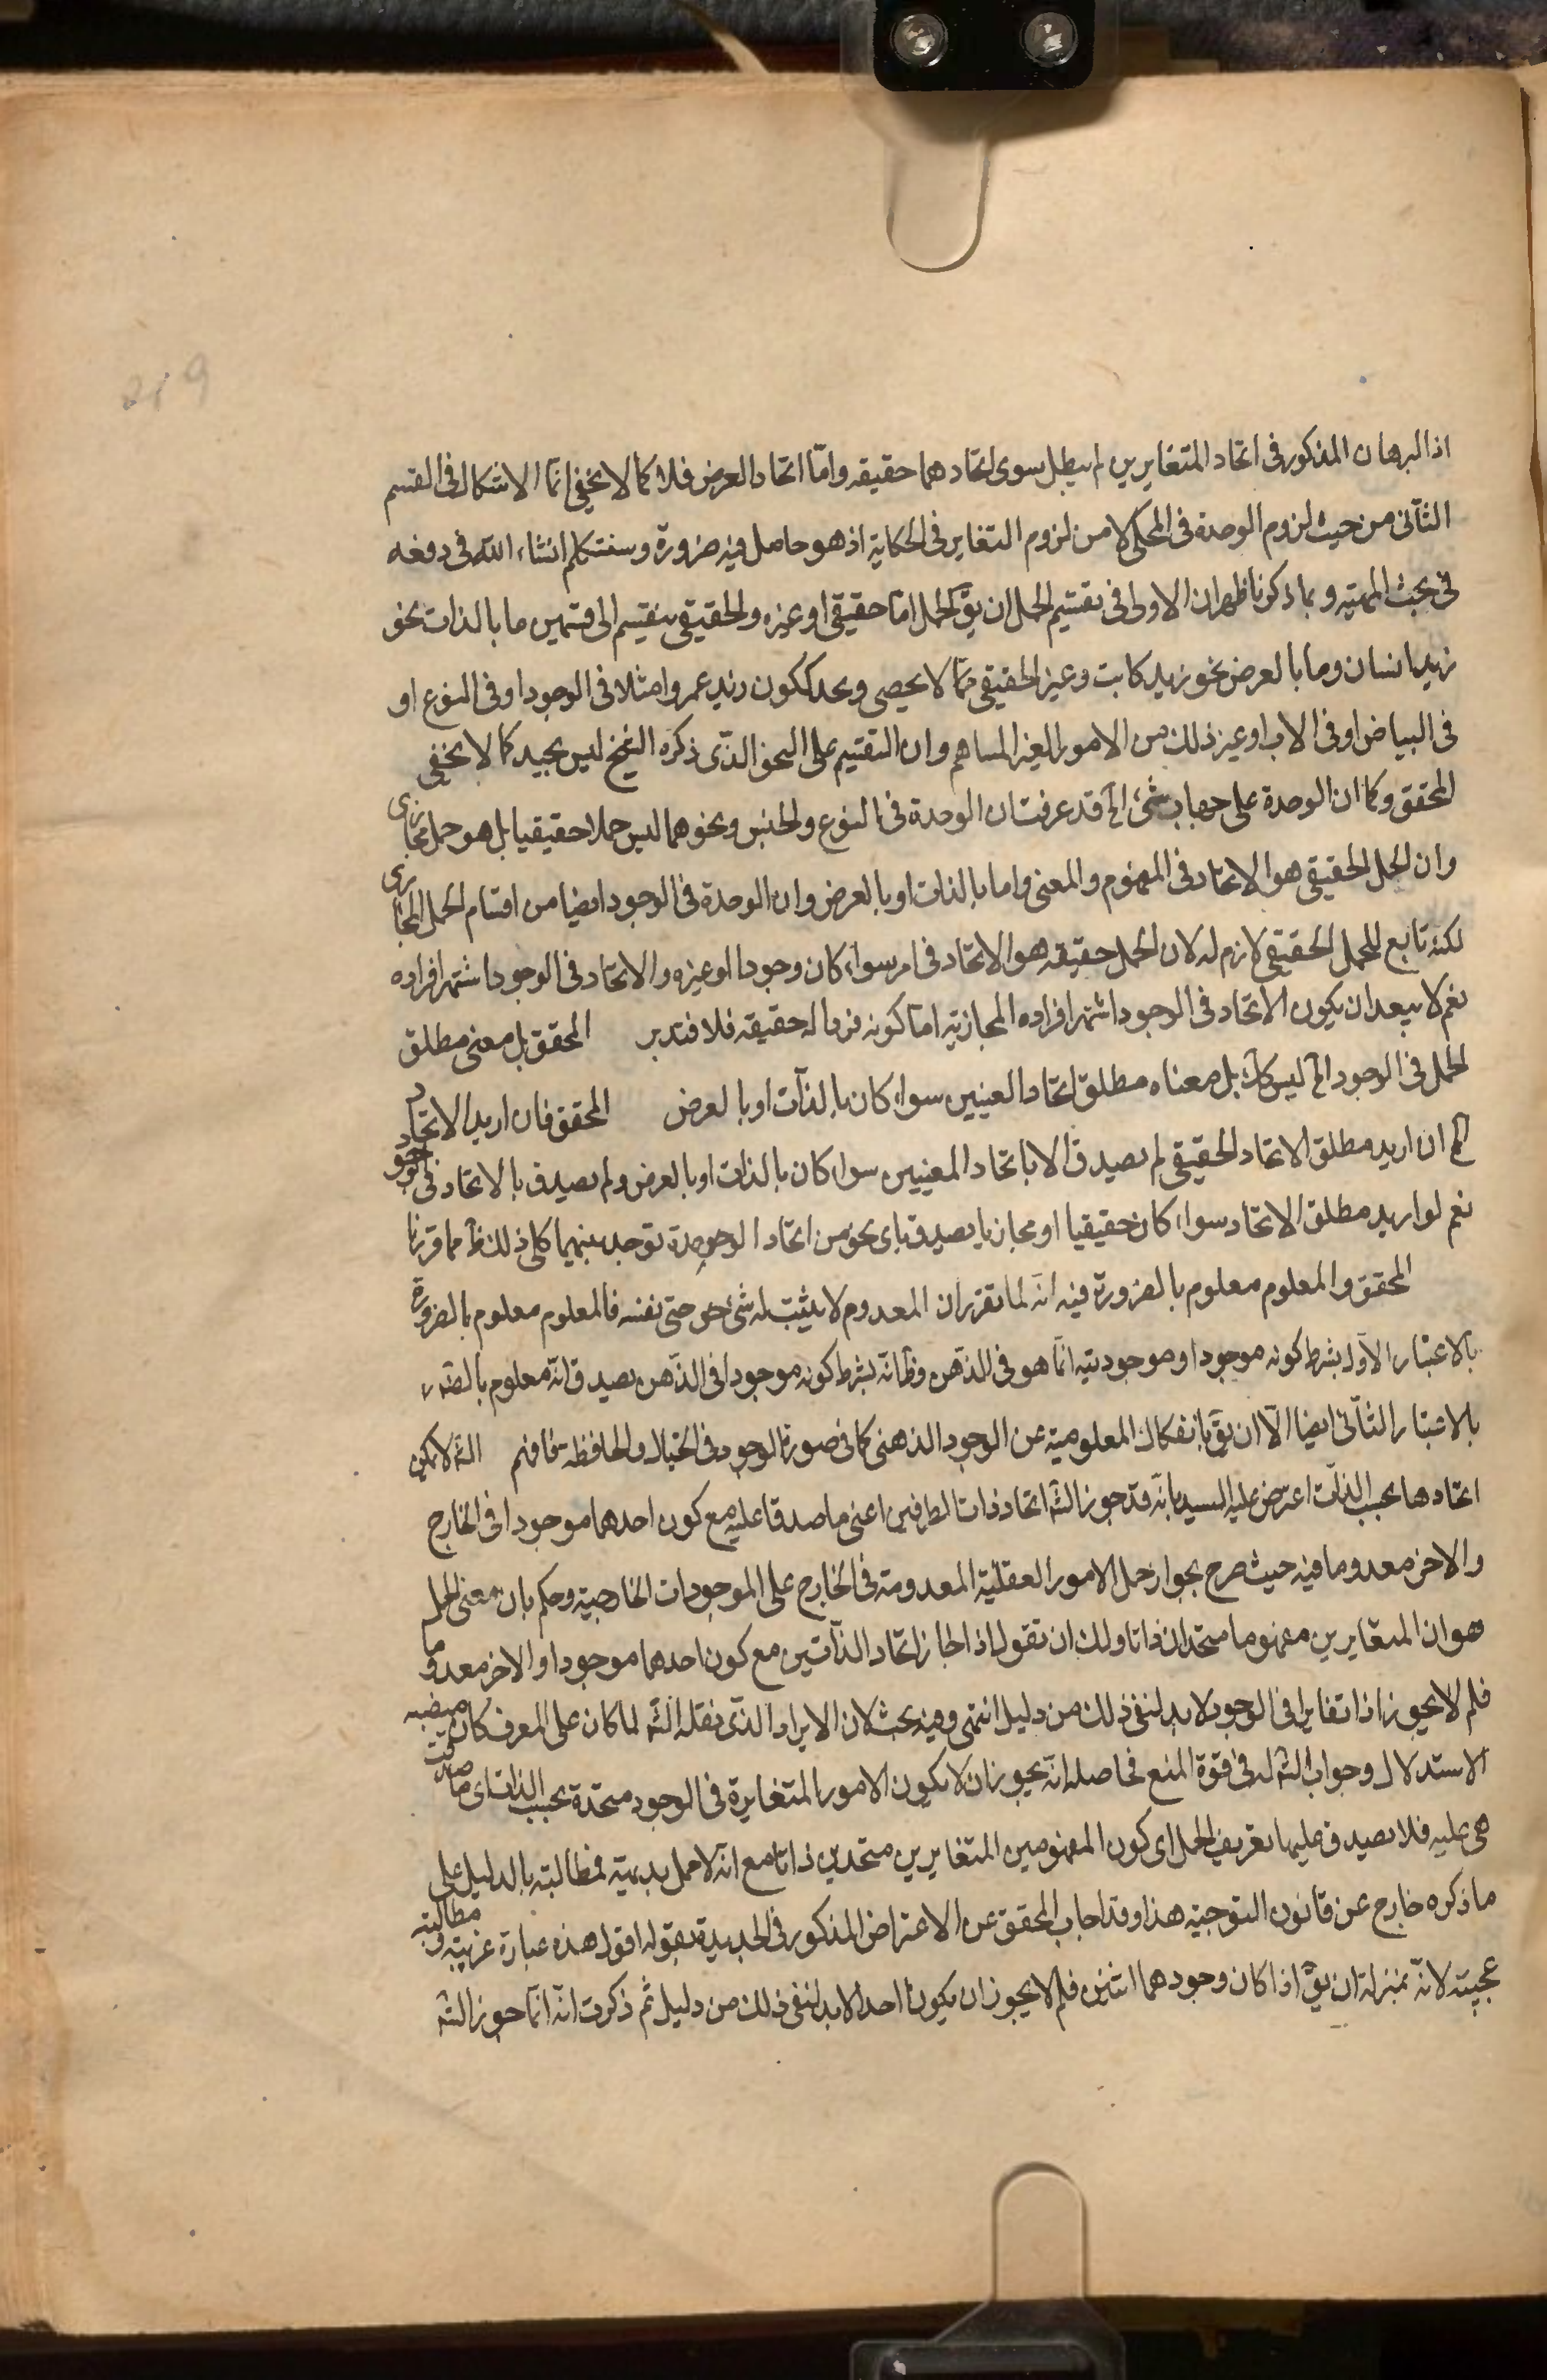 219
اذ البرهان المذكور فى اتحاد المتغايرين لم يبطل سوى اتحادهما حقيقه وامّا اتحاد العرض فلا كما لا يخفى انّما الاشكال فى القسم
الثانى من حيث لزوم الوحدة فى المحكى لا من لزوم التغاير فى الحكاية اذ هو حاصل فيه ضرورة وسنتكلم انشاء الله فى دفعه
فى بحث المهيّة وبما ذكرنا ظهر ان الاولى فى تقسيم الحمل ان يقّ الحمل امّا حقيقى او غيره والحقيقى ينقسم الى قسمين ما بالذات نحو
زيد انسان وما بالعرض نحو زيد كاتب وغير الحقيقى ممّا لا يحصى وبعد ككون زيد عمروا مثلا فى الوجود او فى النوع او
فى البياض او فى الاب او غير ذلك من الامور الغير المتناهيه وان التقسيم على النحو الذّى ذكره الشيخ ليس بجيد كما لا يخفى
المحقق وكما ان الوحدة على جهات شئ الخ قد عرفت ان الوحدة فى النوع والجنس ونحوهما ليس حملا حقيقيا بل هو حمل مجازى
وان الحمل الحقيقى هو الاتحاد فى المفهوم والمعنى واما بالذات او بالعرض وان الوحدة فى الوجود ايضا من اقسام الحمل المجازى
لكنه تابع للحمل الحقيقى لازم له لان الحمل حقيقه هو الاتحاد فى امر سواء كان وجودا او غيره والاتحاد فى الوجود اشتهر افراده
نعم لا يبعد ان يكون الاتحاد فى الوجود اشهر افراده المجازية امّا كونه فردا له حقيقه فلا فتدبر المحقق بل معنى مطلق
الحمل فى الوجود الخ ليس كك بل معناه مطلق اتحاد المعنيين سواء كان بالذات او بالعرض المحقق فان اريد الاتحاد
الخ ان اريد مطلق الاتحاد الحقيقى لم يصدق الا باتحاد المعنيين سواء كان بالذات او بالعرض ولم يصدق بالاتحاد فى الوجود
نعم لو اريد مطلق الاتحاد سواء كان حقيقيا او مجازيا يصدق باى نحو من اتحاد الوحدة توجد بينهما كل ذلك ظ مما قررنا
المحقق والمعلوم معلوم بالضرورة فيه انّه لما تقرر ان المعدوم لا يثبت له شئ حتى نفسه فالمعلوم معلوم بالضرورة
بالاعتبار الاول بشرط كونه موجودا وموجوديته انّما هو فى الذهن وظ انّه بشرط كونه موجودا فى الذّهن يصدق انّه معلوم بالضرورة
بالاعتبار الثانى ايضا الّا ان يقّ بانفكاك المعلومية عن الوجود الذهنى كما فى صورة الوجود فى الخيال والحافظه فافهم الشّه لا يمكن
اتحادها بحسب الذات اعترض عليه السيد بانّه قد جوز الشّه اتحاد ذات الطرفين اعنى ما صدقا عليه مع كون احدهما موجودا فى الخارج
والاخر معدوما فيه حيث صرح بجواز حمل الامور العقليّة المعدومة فى الخارج على الموجودات الخارجية وحكم بان معنى الحمل
هو ان المتغايرين مفهوما متحدان ذاتا ولك ان تقول اذا جاز اتحاد الذاتين مع كون احدهما موجودا والاخر معدوما
فلم لا يجوز اذا تغايرا فى الوجود لا بد لنفى ذلك من دليل انتهى وفيه بحث لان الايراد الذّى نقله الشّه لما كان على المعرف كان منصبه
الاستدلال وجواب الشّه له فى قوة المنع فحاصله انّه يجوز ان لا يكون الامور المتغايرة فى الوجود متحدة بحسب الذات اى ما صدقت
هى عليه فلا يصدق عليها تعريف الحمل اى كون المفهومين المتغايرين متحدين ذاتا مع انّه لا حمل بديهيّة فمطالبته بالدليل على
ما ذكره خارج عن قانون التوجيه هذا وقد اجاب المحقق عن الاعتراض المذكور فى الجديدة بقوله اقول هذه عبارة غريبة ومطالبة
عجيبة لانّه بمنزلة ان يقّ اذا كان وجودهما اثنين فلم لا يجوز ان يكونا احدا لا بد لنفى ذلك من دليل ثم ذكرت انّه انّما جوز الشّه